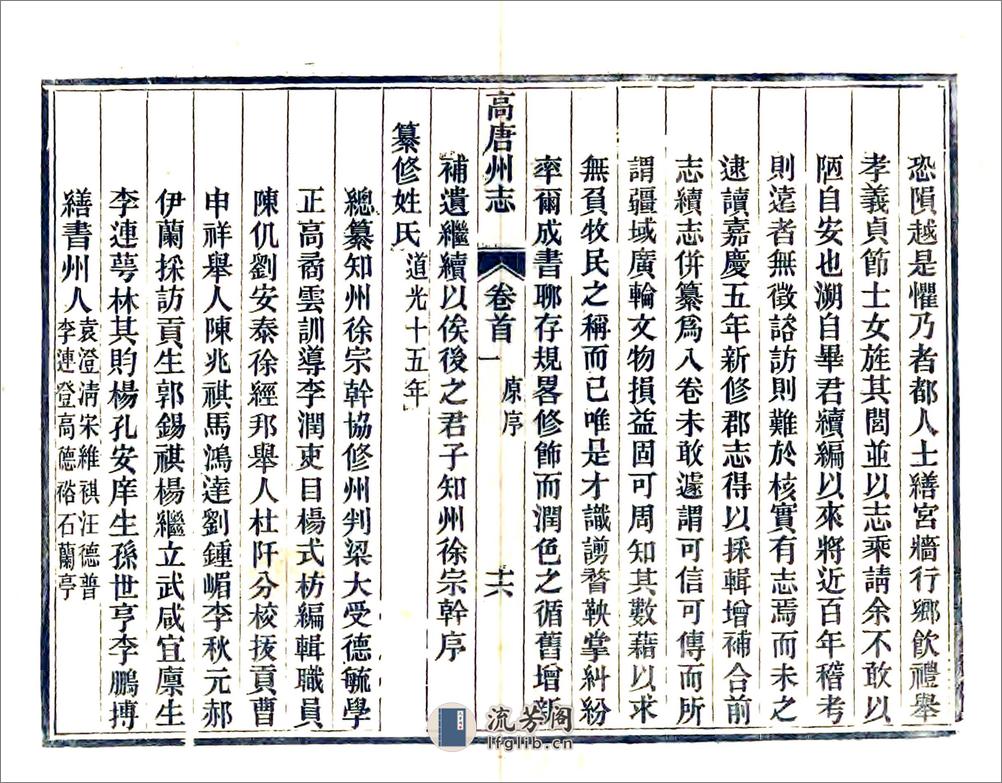 恐隕越是懼乃者都人士繕宮牆行鄉飲禮舉
孝義貞節士女旌其閭並以志乘請余不敢以
陋自安也溯自畢君續編以來將近百年稽考
則遠者無徵諮訪則難於核實有志焉而未之
逮讀嘉慶五年新修郡志得以採輯增補合前
志續志併纂爲八卷未敢遽謂可信可傳而所
謂疆域廣輪文物損益固可周知其數藉以求
無負牧民之稱而已唯是才識謭瞀鞅掌糾紛
率爾成書聊存規畧修飾而潤色之循舊增新
高唐州志 卷首一 原序 十六
補遺繼續以俟後之君子知州徐宗幹序
纂修姓氏道光十五年
總纂知州徐宗幹協修州判梁大受德毓學
正高矞雲訓導李潤吏目楊式枋編輯職員
陳仉劉安泰徐經邦舉人杜阡分校拔貢曹
申祥舉人陳兆祺馬鴻達劉鍾嵋李秋元郝
伊蘭採訪貢生郭錫祺楊繼立武咸宜廩生
李連萼林其昀楊孔安庠生孫世亨李鵬摶
繕書州人袁澄淸宋維祺汪德普
李連登高德裕石蘭亭
流芳阁
lfglib.cn